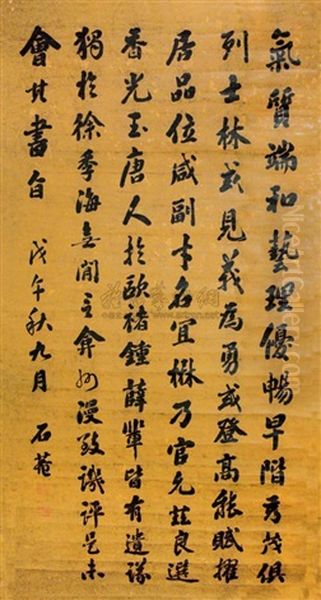 氣質端和藝理優暢早階秀茂俱
列士林或見義為勇或登高能賦擢
居品位咸副才名宜楙乃官允茲良選
香光唐人於歐褚鍾薛輩皆有遺議
獨於徐季海無閒言弇州漫致譏評是未
會其書旨 戊午秋九月 石菴